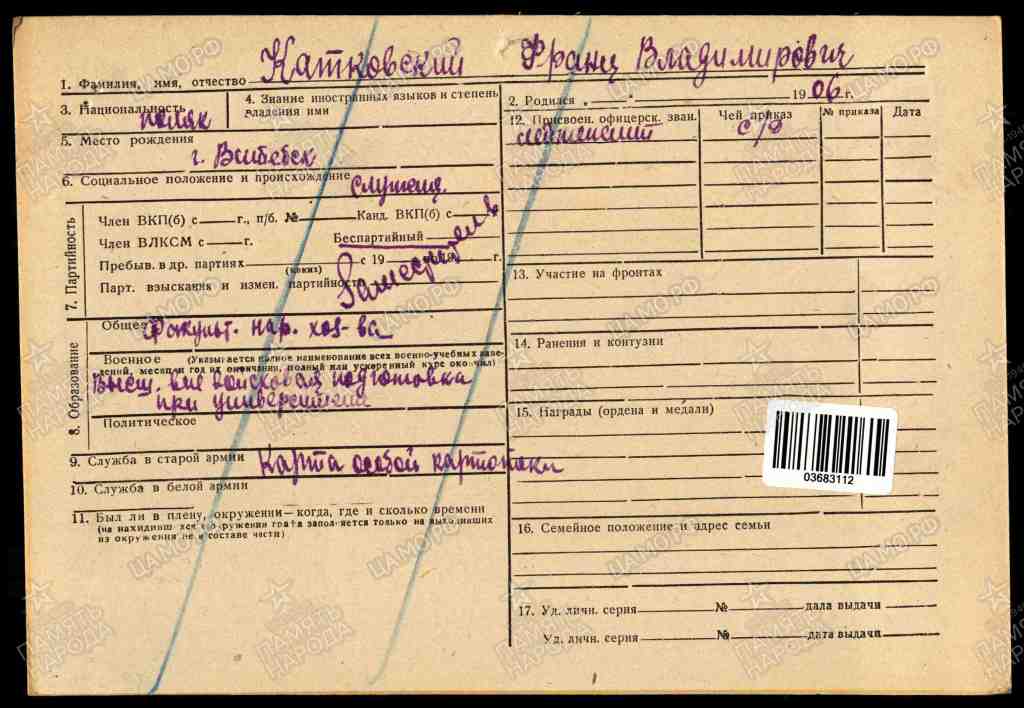 Катковский Франц Владимирович
1. Фамилия, имя, отчество
3. Национальность поляк
4. Знание иностранных языков и степень владения ими
5. Место рождения
г. Витебск
6. Социальное положение и происхождение служащ.
7. Партийность
Член ВКП(б) с г., п/б. № Канд. ВКП(б) с
Член ВЛКСМ с г. Беспартийный
Пребыв. в др. партиях (каких) с 19 по 19 г.
Парт. взыскания и измен. партийности
Заместитель
8. Образование
Общее Факульт. нар. хоз-ва
Военное (Указывается полное наименование всех военно-учебных заве-
дений, месяц и год их окончания, полный или ускоренный курс окончил)
Высш. вне войсковая подготовка
при университете
Политическое
9. Служба в старой армии Карта особой картотеки
10. Служба в белой армии
11. Был ли в плену, окружении—когда, где и сколько времени
(на находивш хся в окружении графа заполняется только на выходивших
из окружения не в составе части)
2. Родился 1906 г.
12. Присвоен. офицерск. зван. Чей приказ № приказа Дата
с/д
13. Участие на фронтах
14. Ранения и контузии
15. Награды (ордена и медали)
03683112
16. Семейное положение и адрес семьи
17. Уд. личн. серия № дала выдачи
Уд. личн. серия № дата выдачи
ПАМЯТЬ НАРОДА
ЦАМО.РФ